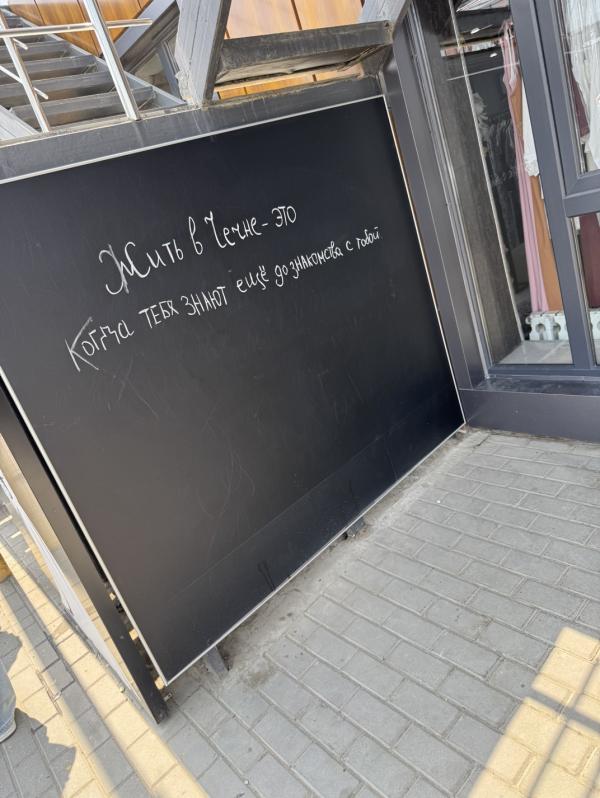 Жить в Чечне - это
Когда тебя знают ещё до знакомства с тобой